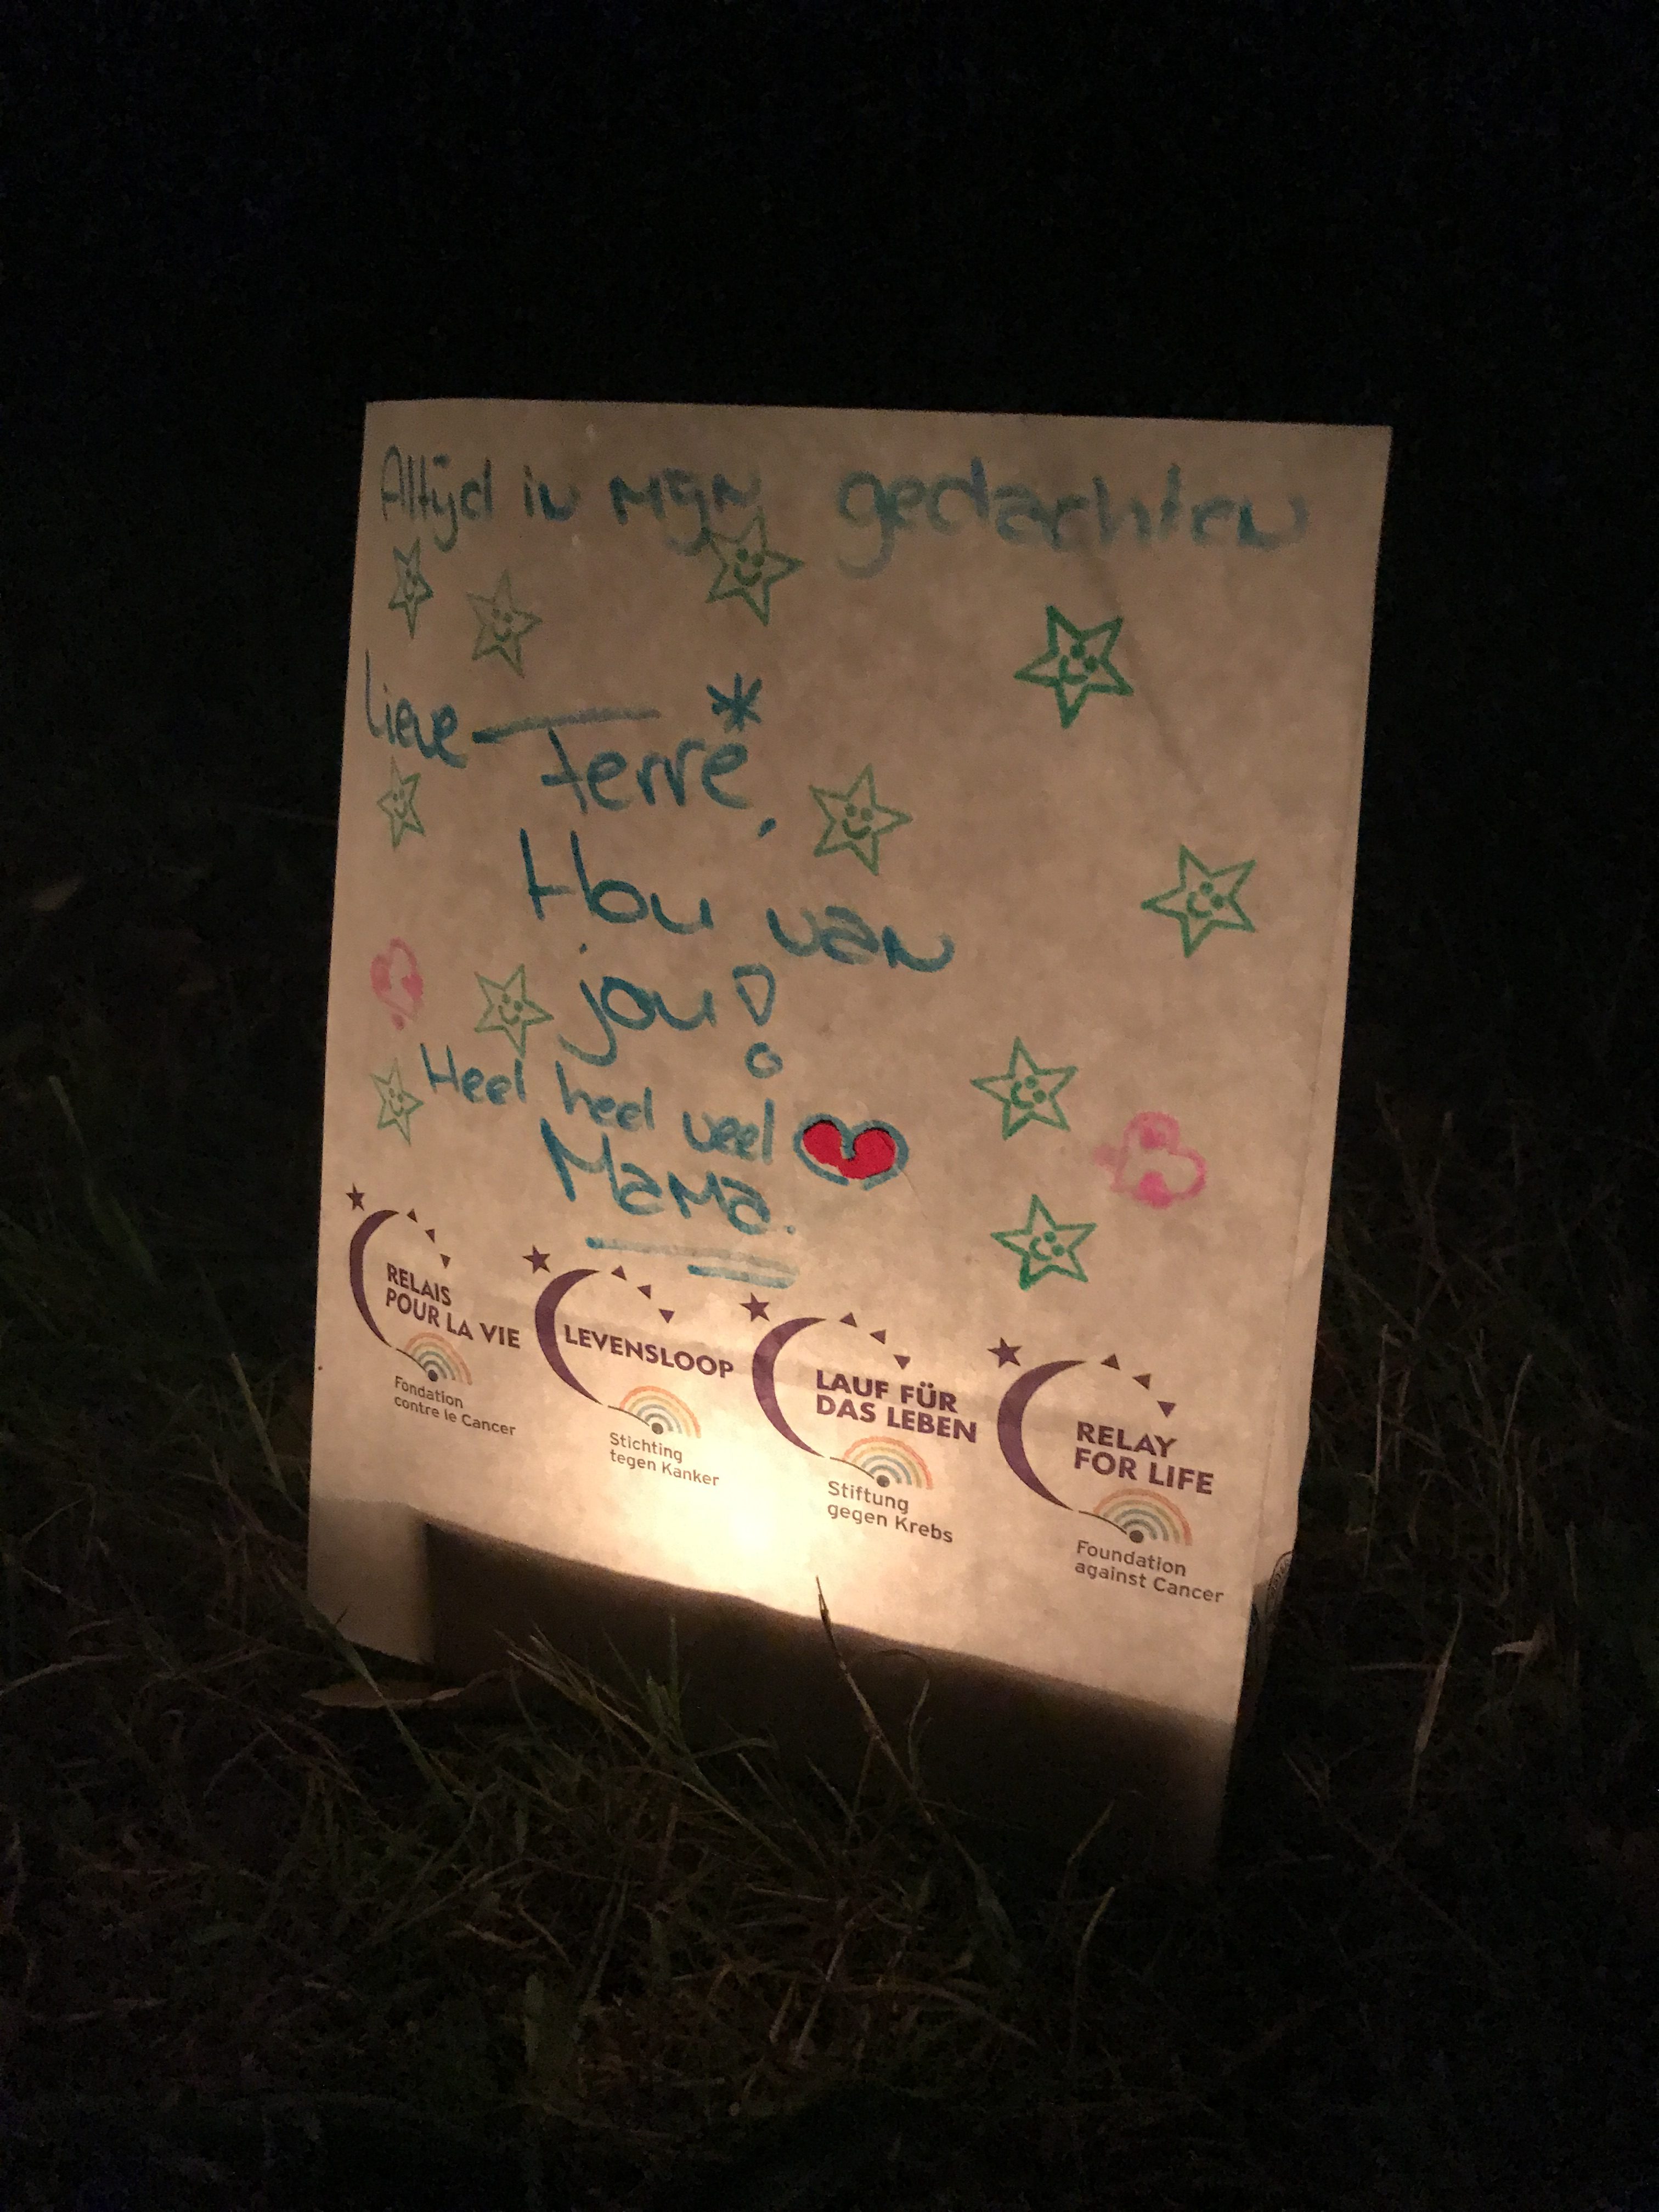 Altijd in mijn gedachten
Lieve
Ferre*,
Hou van
jou!
Heel heel veel
Mama.
RELAIS
POUR LA VIE
Fondation
contre le Cancer
LEVENSLOOP
Stichting
tegen Kanker
LAUF FÜR
DAS LEBEN
Stiftung
gegen Krebs
RELAY
FOR LIFE
Foundation
against Cancer